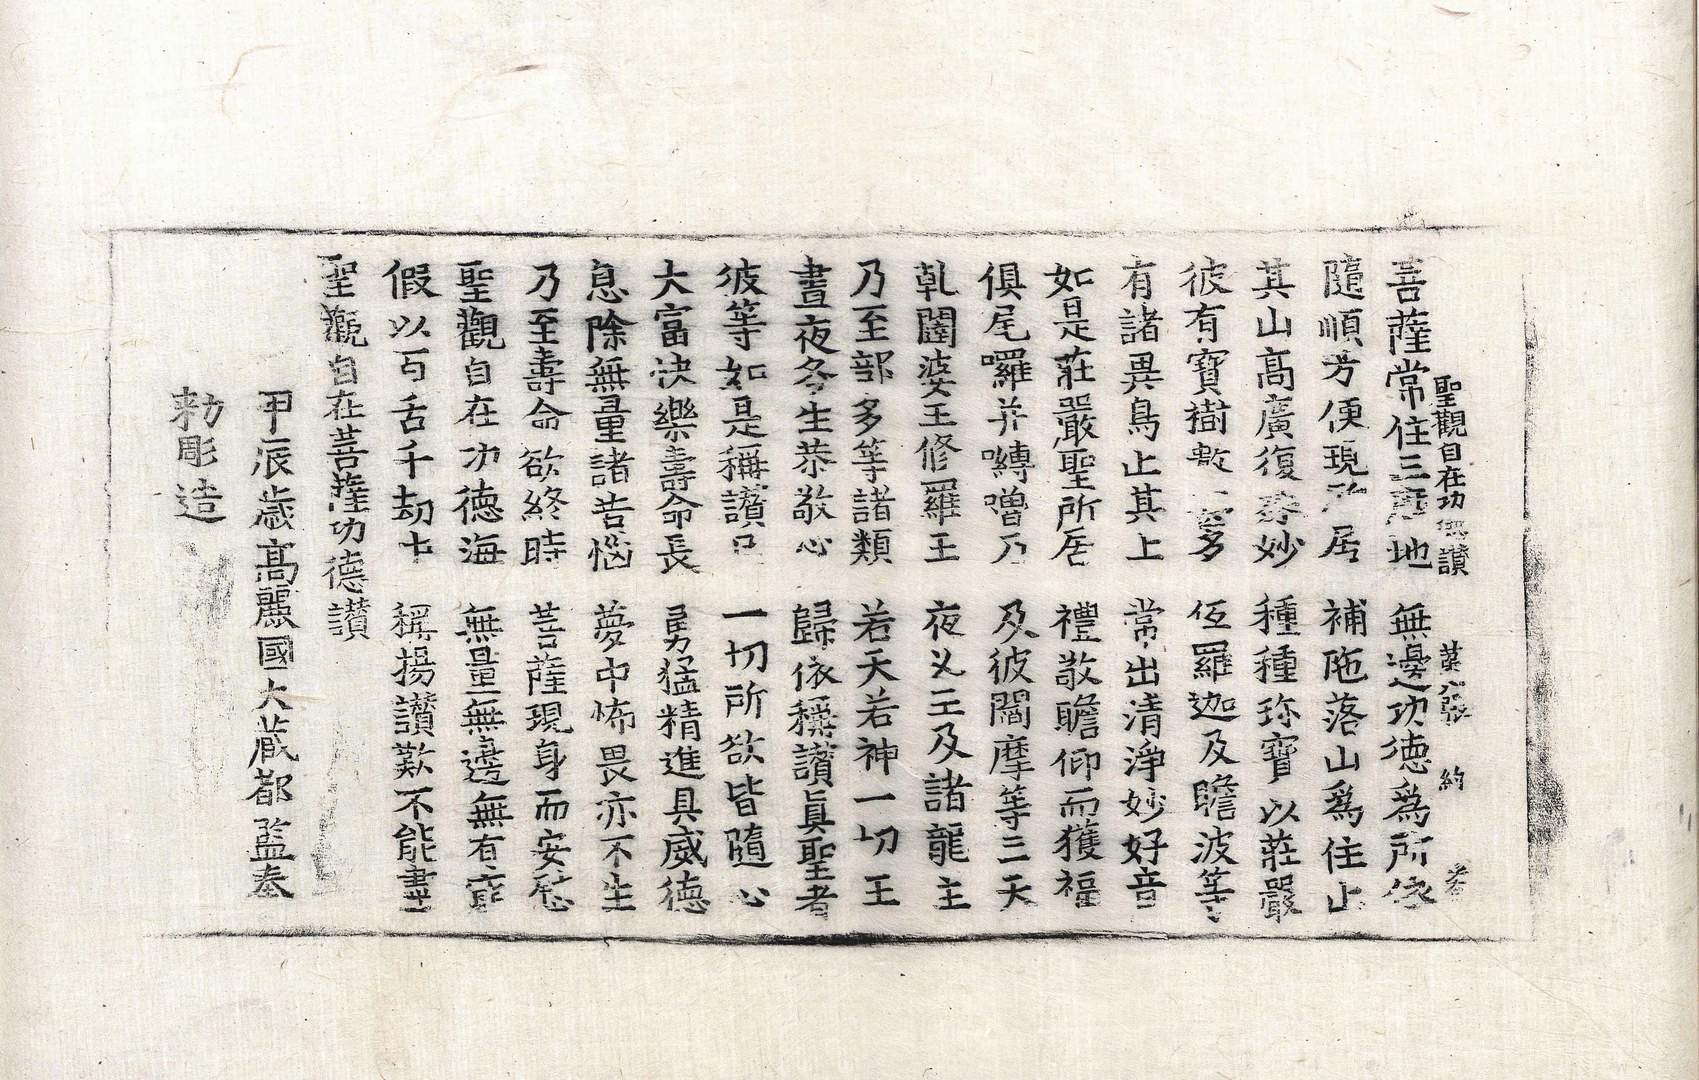 聖觀自在功德讚 第八張 約
菩薩常住三摩地 無邊功德爲所依
隨順方便現所居 補陁落山爲住止
其山高廣復奏妙 種種珎寶以莊嚴
彼有寶樹數 多 伍羅迦及瞻波等
有諸異鳥止其上 常出清淨妙好音
如是莊嚴聖所居 禮敬瞻仰而獲福
俱尾囉并嚩嚕乃 及彼閻摩等三天
乹闥婆王修羅王 夜叉王及諸龍主
乃至部多等諸類 若天若神一切王
晝夜冬生恭敬心 歸依稱讃眞聖者
彼等如是稱讃已 一切所欲皆隨心
大富快樂壽命長 勇猛精進具威德
息除無量諸苦惱 夢中怖畏亦不生
乃至壽命欲終時 菩薩現身而安慰
聖觀自在功德海 無量無邊無有窮
假以百舌千劫中 稱揚讃歎不能盡
聖觀自在菩薩功德讚
甲辰歲高麗國大藏都監奉
勅彫造